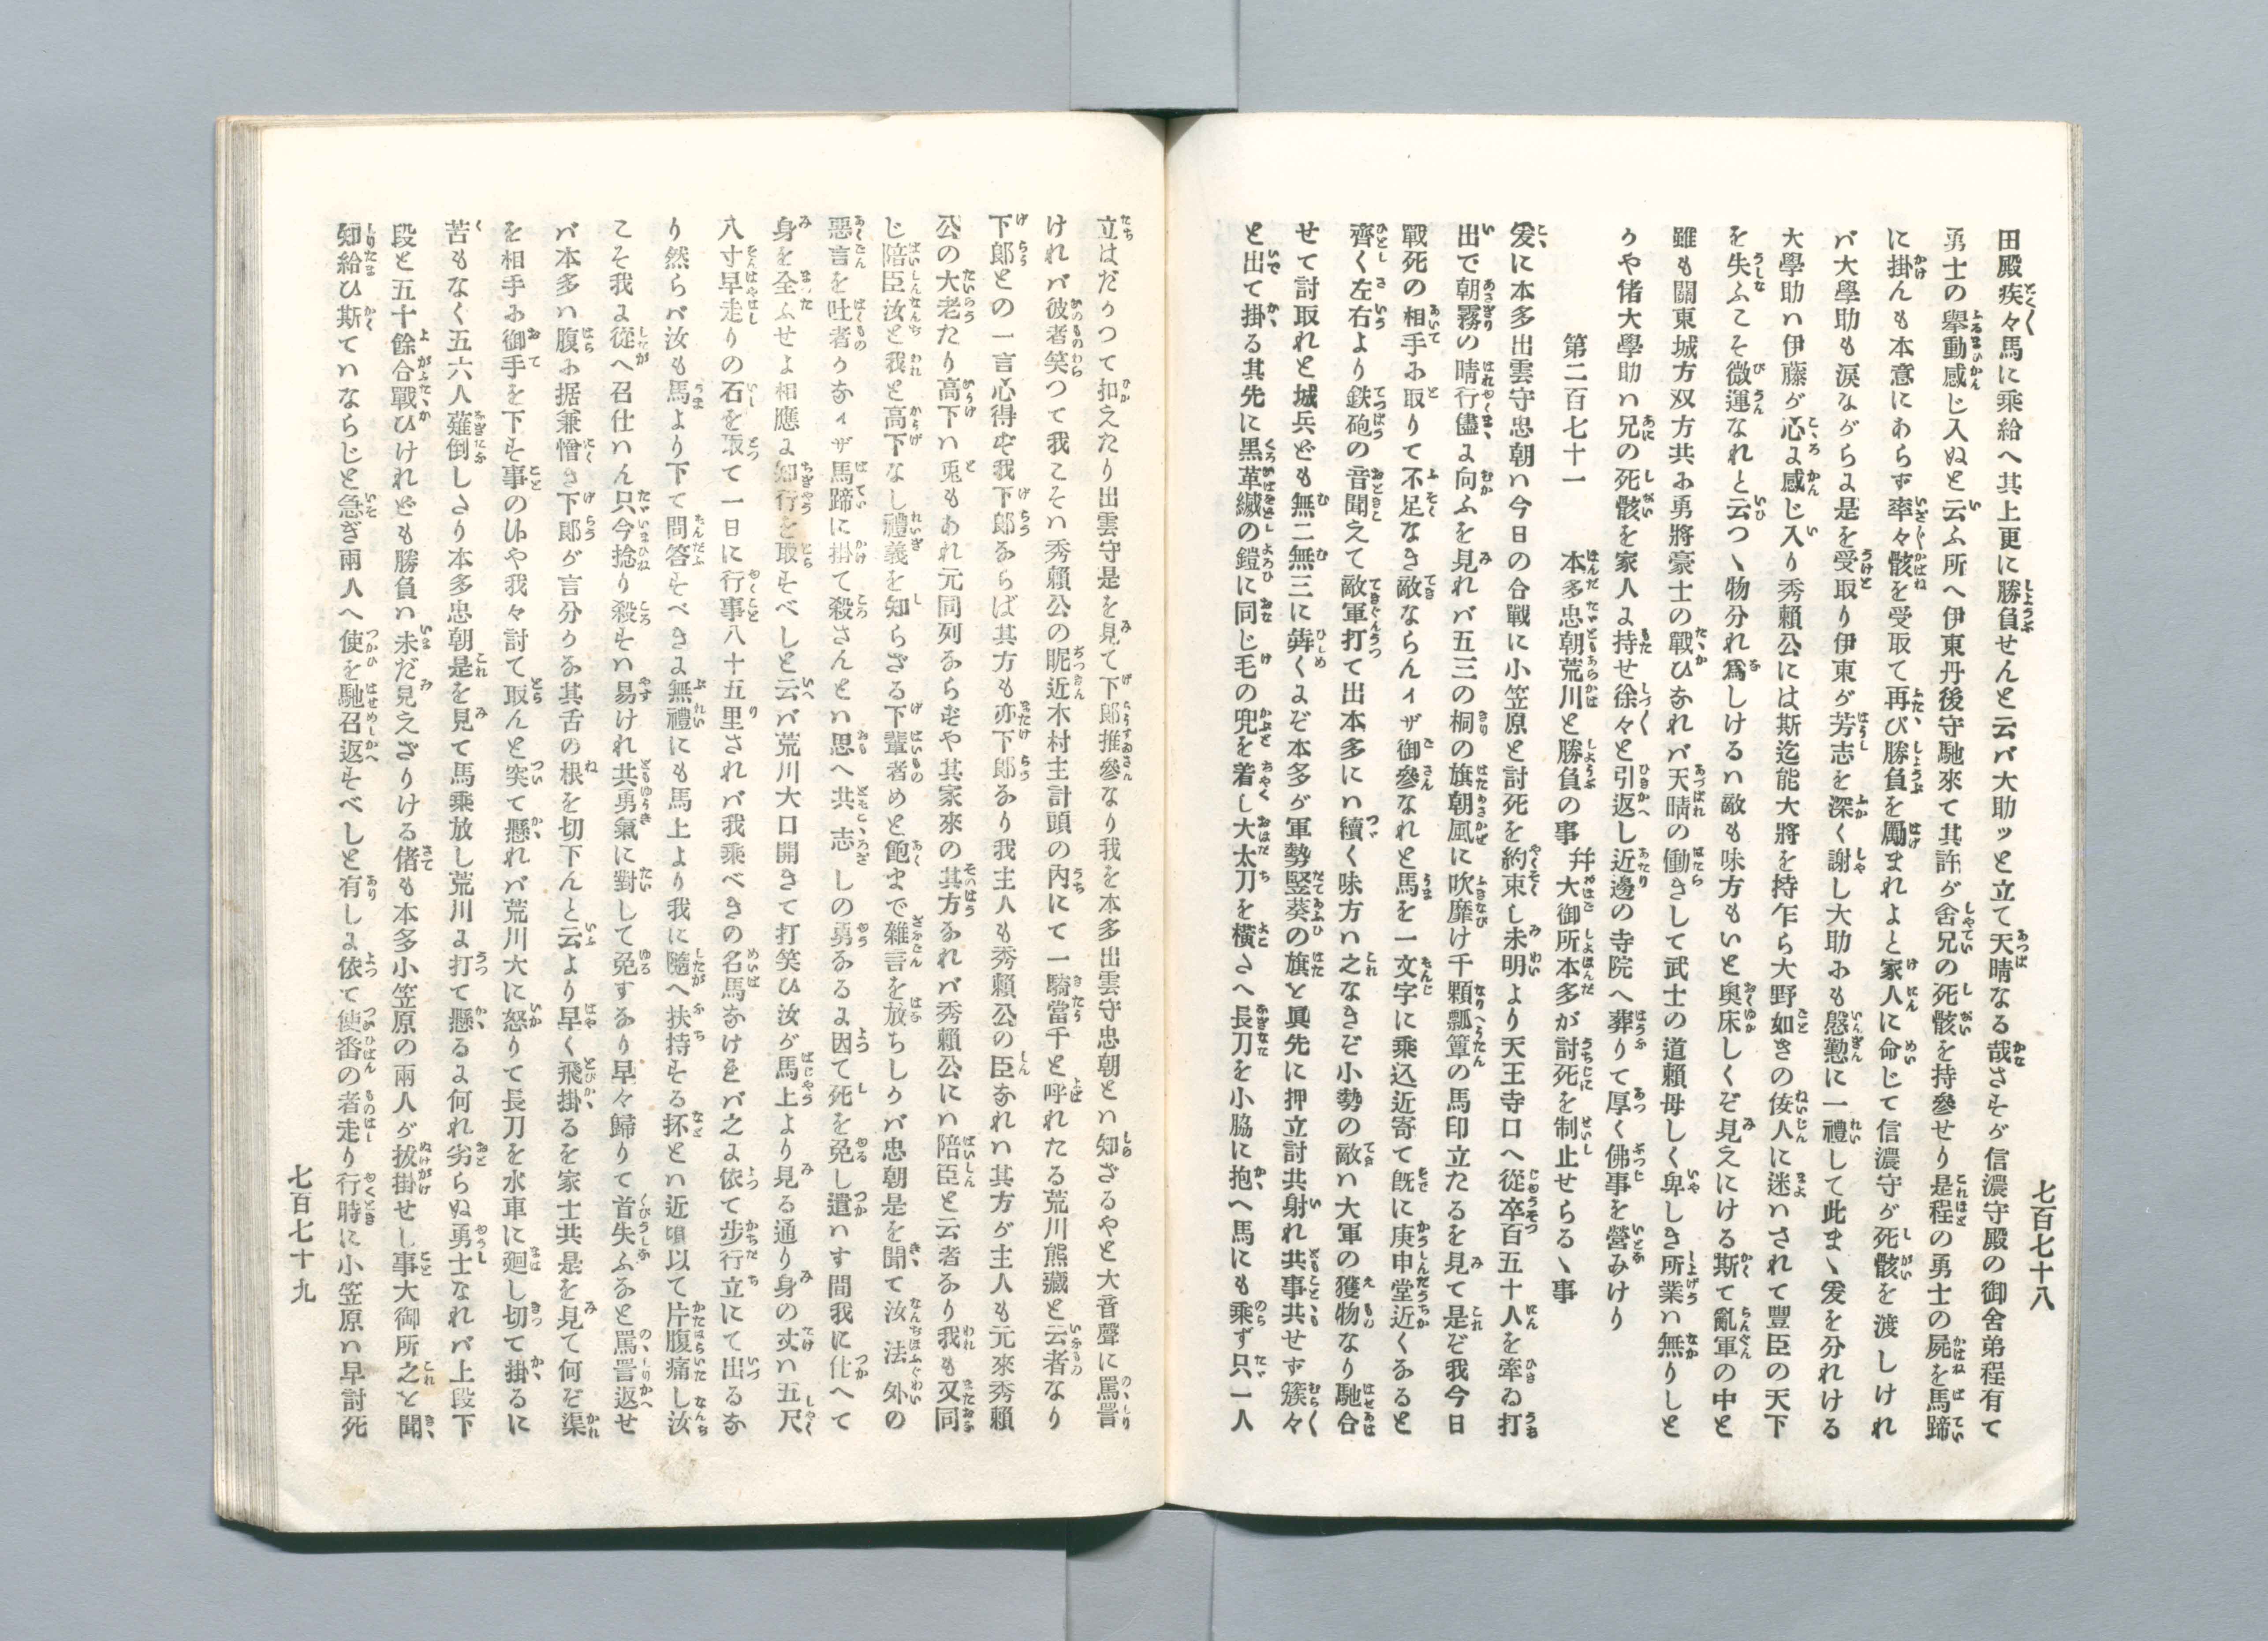 七百七十八
田殿疾々馬に乘給へ其上更に勝負せんと云バ大助ッと立て天晴なる哉さすが信濃守殿の御舍弟程有て
勇士の擧動感じ入ぬと云ふ所へ伊東丹後守馳來て其許が舍兄の死骸を持參せり是程の勇士の屍を馬蹄
に掛んも本意にあらず率々骸を受取て再び勝負を勵まれよと家人に命じて信濃守が死骸を渡しけれ
バ大學助も涙ながらに是を受取り伊東が芳志を深く謝し大助にも慇懃に一禮して此まゝ爰を分れける
大學助ハ伊藤が心に感じ入り秀賴公には斯迄能大將を持乍ら大野如きの侫人に迷ハされて豐臣の天下
を失ふこそ微運なれと云つゝ物分れ爲しけるハ敵も味方もいと奥床しくぞ見えにける斯て亂軍の中と
雖も關東城方双方共に勇將豪士の戰ひなれバ天晴の働きして武士の道賴母しく卑しき所業ハ無りしと
かや偖大學助ハ兄の死骸を家人に持せ徐々と引返し近邊の寺院へ葬りて厚く佛事を營みけり
第二百七十一
本多忠朝荒川と勝負の事 幷大御所本多が討死を制止せらるゝ事
爰に本多出雲守忠朝ハ今日の合戰に小笠原と討死を約束し未明より天王寺口へ從卒百五十人を牽ゐ打
出で朝霧の晴行儘に向ふを見れバ五三の桐の旗朝風に吹靡け千顆瓢簞の馬印立たるを見て是ぞ我今日
戰死の相手に取りて不足なき敵ならんイザ御參なれと馬を一文字に乘込近寄て既に庚申堂近くなると
齊く左右より鉄砲の音聞えて敵軍打て出本多にハ續く味方ハ之なきぞ小勢の敵ハ大軍の獲物なり馳合
せて討取れと城兵ども無二無三に犇くにぞ本多が軍勢竪葵の旗と眞先に押立討共射れ共事共せず簇々
と出て掛る其先に黒革縅の鎧に同じ毛の兜を着し大太刀を横さへ長刀を小脇に抱へ馬にも乘ず只一人
立はだかつて扣えたり出雲守是を見て下郎推參なり我を本多出雲守忠朝とハ知ざるやと大音聲に罵詈
けれバ彼者笑つて我こそハ秀賴公の昵近木村主計頭の内にて一騎當千と呼れたる荒川熊藏と云者なり
下郎との一言心得ず我下郎ならば其方も亦下郎なり我主人も秀賴公の臣なれハ其方が主人も元來秀賴
公の大老たり高下ハ兎もあれ元同列ならずや其家來の其方なれバ秀賴公にハ陪臣と云者なり我も又同
じ陪臣汝と我と高下なし禮義を知らざる下輩者めと飽まで雜言を放ちしかバ忠朝是を聞て汝法外の
惡言を吐者かなイザ馬蹄に掛て殺さんとハ思へ共志しの勇なるに因て死を免し遣ハす間我に仕へて
身を全ふせよ相應に知行を取すべしと云バ荒川大口開きて打笑ひ汝が馬上より見る通り身の丈ハ五尺
八寸早走りの石を取て一日に行事八十五里されバ我乘べきの名馬なけれバ之に依て歩行立にて出るな
り然らバ汝も馬より下て問答すべきに無禮にも馬上より我に隨へ扶持する抔とハ近頃以て片腹痛し汝
こそ我に從へ召仕ハん只今捻り殺すハ易けれ共勇氣に對して免するなり早々歸りて首失ふなと罵詈返せ
バ本多ハ腹に据兼憎き下郎が言分かな其舌の根を切下んと云より早く飛掛るを家士共是を見て何ぞ渠
を相手に御手を下す事の候や我々討て取んと突て懸れバ荒川大に怒りて長刀を水車に廻し切て掛るに
苦もなく五六人薙倒しさり本多忠朝是を見て馬乘放し荒川に打て懸るに何れ劣らぬ勇士なれバ上段下
段と五十餘合戰ひけれども勝負ハ未だ見えざりける偖も本多小笠原の兩人が拔掛せし事大御所之と聞
知給ひ斯てハならじと急ぎ兩人へ使を馳召返すべしと有しに依て使番の者走り行時に小笠原ハ早討死
七百七十九